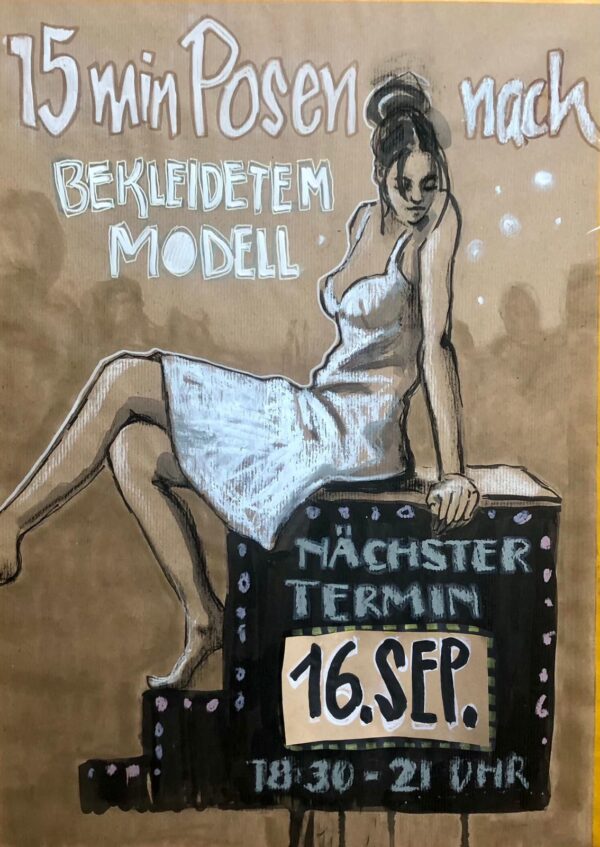 15 min Posen nach
BEKLEIDETEM
MODELL
NÄCHSTER
TERMIN
16. SEP.
18:30 - 21 UHR